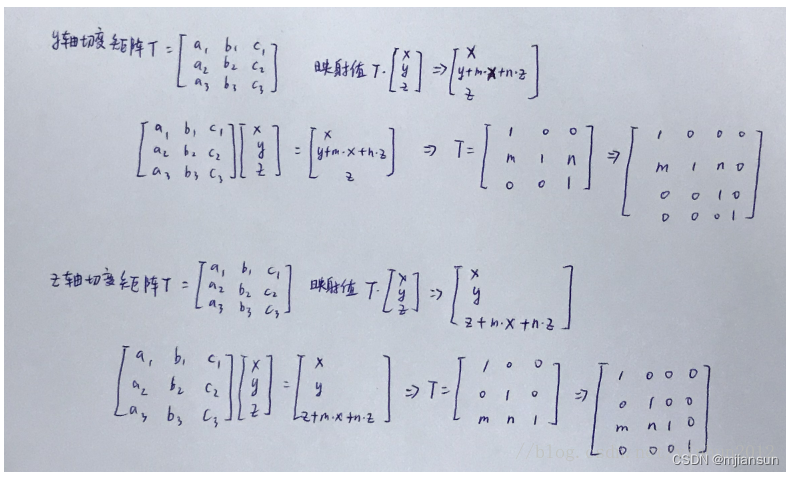 y轴切变矩阵 T = [a₁ b₁ c₁; a₂ b₂ c₂; a₃ b₃ c₃] 映射值 T·[x; y; z] ⇒ [x; y+m·x+n·z; z]
[a₁ b₁ c₁; a₂ b₂ c₂; a₃ b₃ c₃][x; y; z] = [x; y+m·x+n·z; z] ⇒ T = [1 0 0; m 1 n; 0 0 1] ⇒ [1 0 0 0; m 1 n 0; 0 0 1 0; 0 0 0 1]
z轴切变矩阵 T = [a₁ b₁ c₁; a₂ b₂ c₂; a₃ b₃ c₃] 映射值 T·[x; y; z] ⇒ [x; y; z+m·x+n·z]
[a₁ b₁ c₁; a₂ b₂ c₂; a₃ b₃ c₃][x; y; z] = [x; y; z+m·x+n·z] ⇒ T = [1 0 0; 0 1 0; m n 1] ⇒ [1 0 0 0; 0 1 0 0; m n 1 0; 0 0 0 1]
CSDN @mjiansun